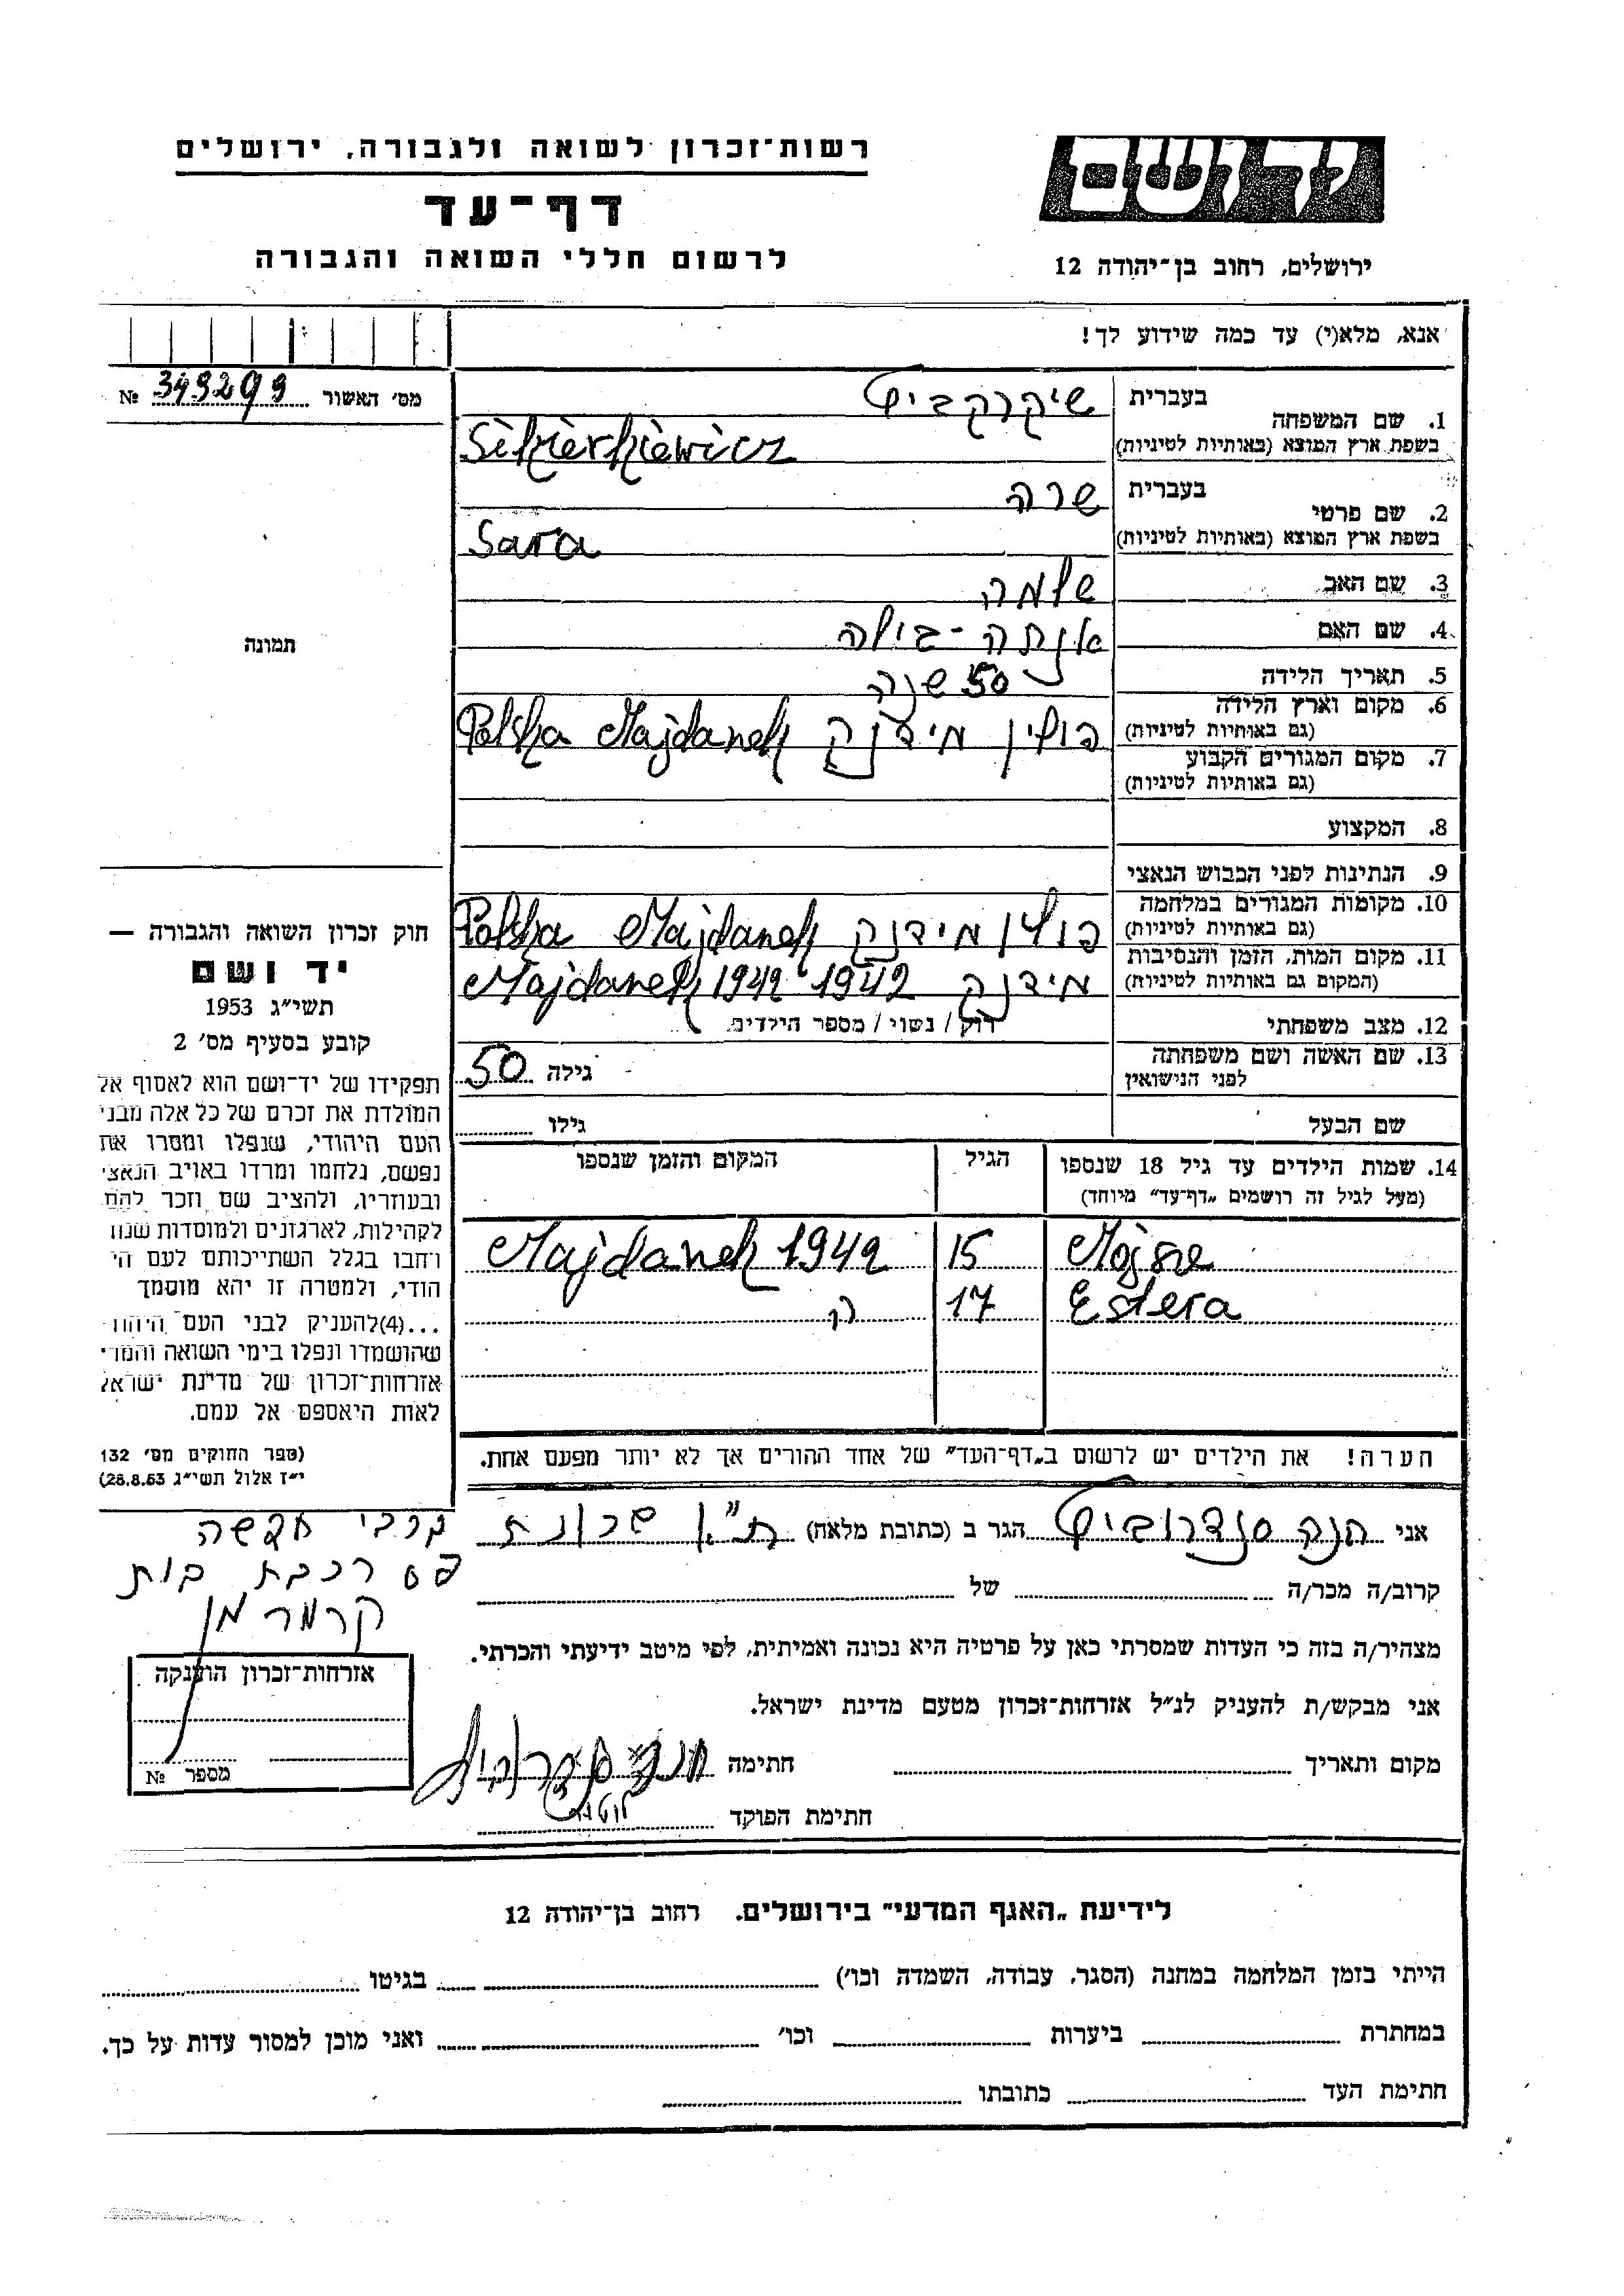 רשות־זכרון לשואה ולגבורה, ירושלים
דף־עד
לרשום חללי השואה והגבורה
יד ושם
ירושלים, רחוב בן־יהודה 12
אנא, מלא(י) עד כמה שידוע לך!
מס׳ האשור 349299 №
1. שם המשפחה
בעברית שיקרקביץ
בשפת ארץ המוצא (באותיות לטיניות) Sikierkiewicz
2. שם פרטי
בעברית שרה
בשפת ארץ המוצא (באותיות לטיניות) Sara
3. שם האב שלמה
4. שם האם
5. תאריך הלידה 50 שנה
6. מקום וארץ הלידה
(גם באותיות לטיניות) פולין מידנק Majdanek Polska
7. מקום המגורים הקבוע
(גם באותיות לטיניות)
8. המקצוע
9. הנתינות לפני הכבוש הנאצי
10. מקומות המגורים במלחמה
(גם באותיות לטיניות) פולין מידנק Majdanek Polska
11. מקום המות, הזמן והנסיבות
(המקום גם באותיות לטיניות) מידנק 1942 Majdanek 1942
12. מצב משפחתי רוק / נשוי / מספר הילדים
13. שם האשה ושם משפחתה
לפני הנישואין גילה 50
שם הבעל גילו
14. שמות הילדים עד גיל 18 שנספו
(מעל לגיל זה רושמים „דף־עד” מיוחד)
הגיל
המקום והזמן שנספו
Mojsze 15 Majdanek 1942
Estera 17
הערה! את הילדים יש לרשום ב„דף־העד” של אחד ההורים אך לא יותר מפעם אחת.
תמונה
חוק זכרון השואה והגבורה —
יד ושם
תשי״ג 1953
קובע בסעיף מס׳ 2
תפקידו של יד־ושם הוא לאסוף אל
המולדת את זכרם של כל אלה מבני
העם היהודי, שנפלו ומסרו את
נפשם, נלחמו ומרדו באויב הנאצי
ובעוזריו, ולהציב שם וזכר להם
לקהילות, לארגונים ולמוסדות שנח
רחבו בגלל השתייכותם לעם הי
הודי, ולמטרה זו יהא מוסמך
...(4)להעניק לבני העם היהוד
שהושמדו ונפלו בימי השואה והמרי
אזרחות־זכרון של מדינת ישראל
לאות היאספם אל עמם.
(ספר החוקים מס׳ 132
י״ז אלול תשי״ג 28.8.53)
אני חנה סנדרוביץ הגר ב (כתובת מלאה) ת״א שכונת
רכבת
קרוב/ה מכר/ה של
מצהיר/ה בזה כי העדות שמסרתי כאן על פרטיה היא נכונה ואמיתית, לפי מיטב ידיעתי והכרתי.
אני מבקש/ת להעניק לנ״ל אזרחות־זכרון מטעם מדינת ישראל.
מקום ותאריך חתימה חנה סנדרוביץ
חתימת הפוקד
אזרחות־זכרון הוענקה
מספר №
לידיעת „האגף המדעי” בירושלים. רחוב בן־יהודה 12
הייתי בזמן המלחמה במחנה (הסגר, עבודה, השמדה וכו׳) בגיטו
במחתרת ביערות וכו׳ ואני מוכן למסור עדות על כך.
חתימת העד כתובתו